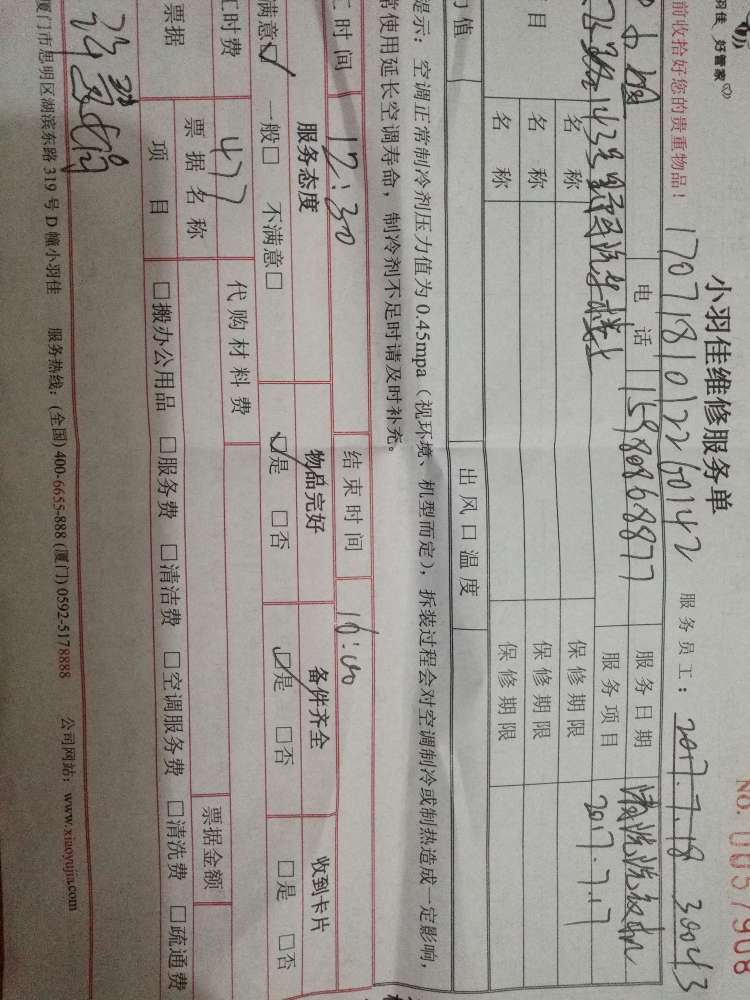 羽佳 好管家
小羽佳维修服务单
NO. 0057908
前收拾好您的贵重物品！
170718101226042 服务员工： 2017.7.18 30043
电话 15980968877 服务日期
目 服务项目 2017.7.17
名称 保修期限
名称 保修期限
名称 保修期限
力值 出风口温度
提示：空调正常制冷剂压力值为0.45mpa（视环境、机型而定），拆装过程会对空调制冷或制热造成一定影响，
常使用延长空调寿命，制冷剂不足时请及时补充。
工时间 12:30 结束时间 16:00
服务态度 物品完好 备件齐全 收到卡片
满意☑ 一般□ 不满意□ ☑是 □否 ☑是 □否 □是 □否
工时费 477 代购材料费
票据 票据名称 票据金额
项目 □搬办公用品 □服务费 □清洁费 □空调服务费 □清洗费 □疏通费
厦门市思明区湖滨东路319号D幢小羽佳 服务热线：(全国) 400-6655-888 (厦门) 0592-5178888 公司网站：www.xiaoyujia.com